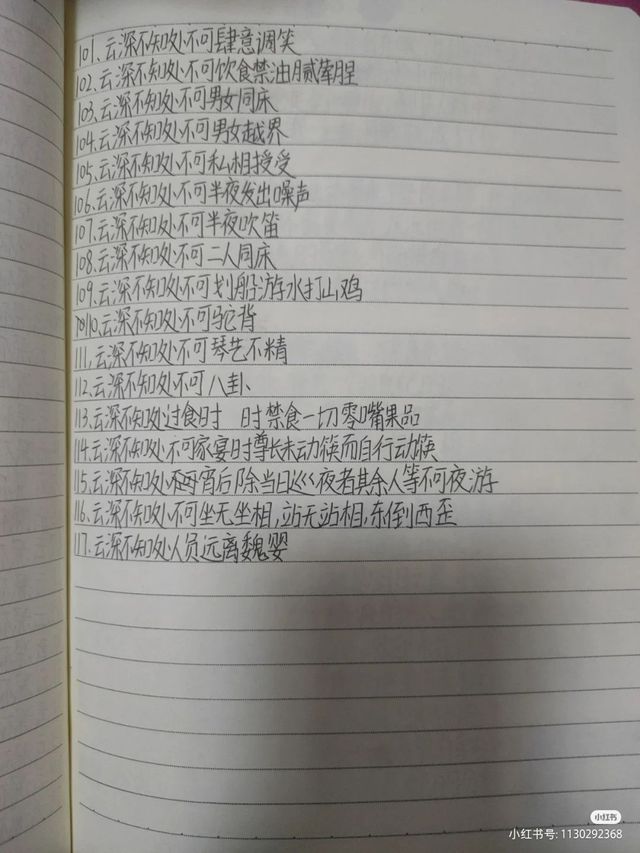 101、云深不知处不可肆意调笑
102、云深不知处不可饮食禁油腻荤腥
103、云深不知处不可男女同床
104、云深不知处不可男女越界
105、云深不知处不可私相授受
106、云深不知处不可半夜发出噪声
107、云深不知处不可半夜吹笛
108、云深不知处不可二人同床
109、云深不知处不可划船游水打山鸡
110、云深不知处不可驼背
111、云深不知处不可琴艺不精
112、云深不知处不可八卦、
113、云深不知处过食时 时禁食一切零嘴果品
114、云深不知处不可家宴时尊长未动筷而自行动筷
115、云深不知处每宵后除当日巡夜者其余人等不可夜游
116、云深不知处不可坐无坐相,站无站相,东倒西歪
117、云深不知处人员远离魏婴
小红书
小红书号: 1130292368